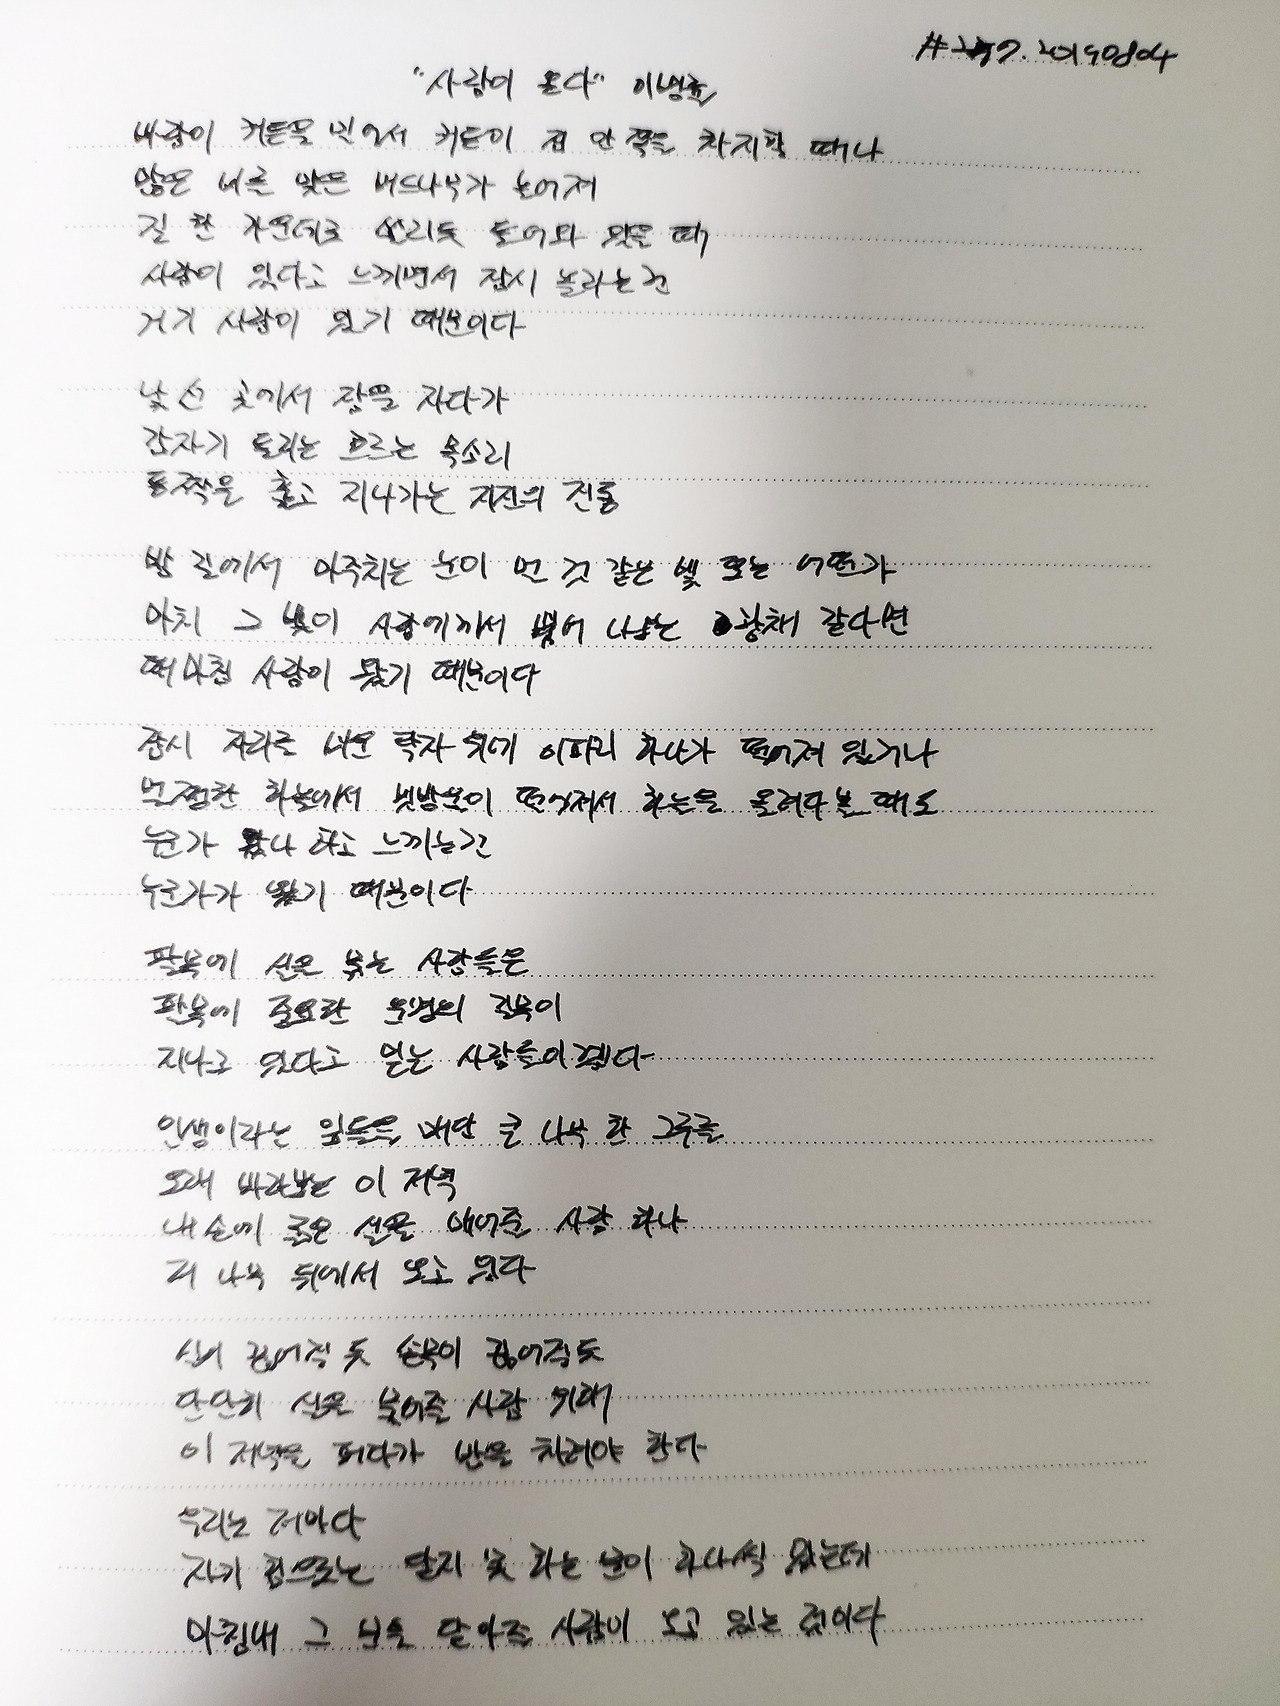 20190804
"사람이 온다" 이병률
바람이 커튼을 밀어서 커튼이 집 안 쪽을 차지할 때나
많은 비를 맞은 버드나무가 늘어져
길 한 가운데로 쓰러지듯 들어와 있을 때
사람이 있다고 느끼면서 잠시 놀라는 건
거기 사람이 있기 때문이다
낯선 곳에서 잠을 자다가
갑자기 들리는 흐르는 목소리
등짝을 훑고 지나가는 지진의 진동
밤 길에서 마주치는 눈이 먼 것 같은 빛 또는 어떤가
마치 그 빛이 사람에게서 뻗어 나오는 광채 같다면
때마침 사람이 왔기 때문이다
잠시 자리를 비운 탁자 위에 이파리 하나가 떨어져 있거나
멀쩡한 하늘에서 빗방울이 떨어져서 하늘을 올려다 볼 때도
누가 왔나 하고 느끼는 건
누군가가 왔기 때문이다
팔목에 실을 묶는 사람들은
팔목에 중요한 운명의 길목이
지나고 있다고 믿는 사람들이겠다
인생이라는 잎들을 매단 큰 나무 한 그루를
오래 바라보는 이 저녁
내 손에 굵은 실을 매어줄 사람 하나
저 나무 뒤에서 오고 있다
실이 끊어질 듯 손목이 끊어질 듯
단단히 실을 묶어줄 사람 위해
이 저녁을 퍼다가 밥을 차려야 한다
우리는 저마다
자기 힘으로는 닫지 못 하는 문이 하나씩 있는데
마침내 그 문을 닫아줄 사람이 오고 있는 것이다